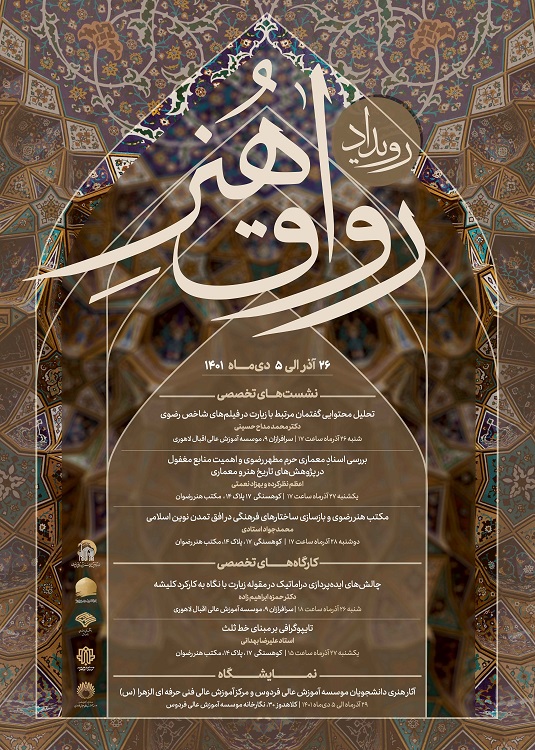 رویداد
رواق هنر
۲۶ آذر الی ۵ دی‌ماه ۱۴۰۱
نشست‌های تخصصی
تحلیل محتوایی گفتمان مرتبط با زیارت در فیلم‌های شاخص رضوی
دکتر محمد مداح حسینی
شنبه ۲۶ آذرماه ساعت ۱۷ | سرافرازان ۹، موسسه آموزش عالی اقبال لاهوری
بررسی اسناد معماری حرم مطهر رضوی و اهمیت منابع مغفول
در پژوهش‌های تاریخ هنر و معماری
اعظم نظرکرده و بهزاد نعمتی
یکشنبه ۲۷ آذرماه ساعت ۱۷ | کوهسنگی ۱۷ پلاک ۱۴ ، مکتب هنر رضوان
مکتب هنر رضوی و بازسازی ساختارهای فرهنگی در افق تمدن نوین اسلامی
محمدجواد استادی
دوشنبه ۲۸ آذرماه ساعت ۱۷ | کوهسنگی ۱۷، پلاک ۱۴، مکتب هنر رضوان
کارگاه‌های تخصصی
چالش‌های ایده‌پردازی دراماتیک در مقوله زیارت با نگاه به کارکرد کلیشه
دکتر حمزه ابراهیم‌زاده
شنبه ۲۶ آذرماه ساعت ۱۸ | سرافرازان ۹، موسسه آموزش عالی اقبال لاهوری
تایپوگرافی بر مبنای خط ثلث
استاد علیرضا بهدانی
یکشنبه ۲۷ آذرماه ساعت ۱۵ | کوهسنگی ۱۷، پلاک ۱۴، مکتب هنر رضوان
نمایشگاه
آثار هنری دانشجویان موسسه آموزش عالی فردوس و مرکز آموزش عالی فنی حرفه ای الزهرا (س)
۲۹ آذرماه الی ۵ دی‌ماه ۱۴۰۱ | کلاهدوز ۳۰، نگارخانه موسسه آموزش عالی فردوس